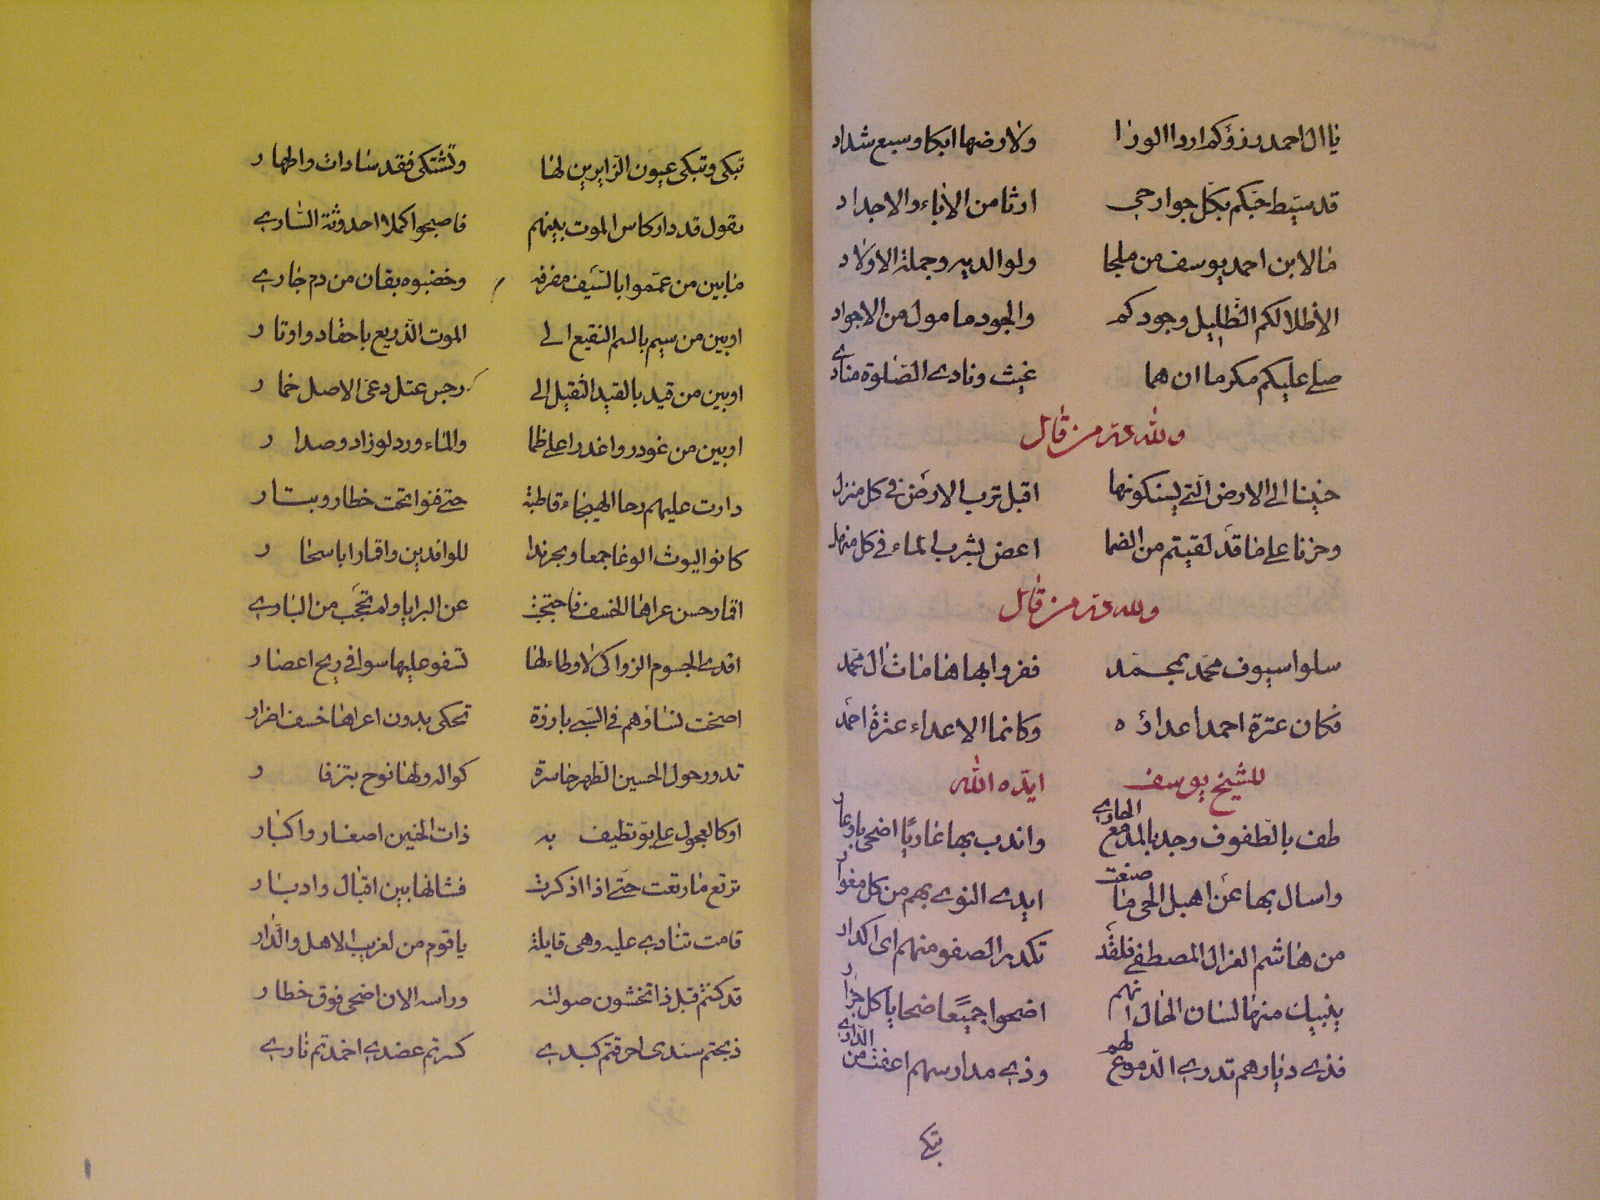 يا ال احمد رزؤكم اردا الورا ولارضها ابكا وسبع شداد
قد سيط حبكم بكل جوارحي ارثا من الاباء والاجداد
ما لابن احمد يوسف من ملجا ولوالديه وجملة الاولاد
الا ظلالكم الظليل وجودكم والجود مامول من الاجواد
صلى عليكم مكرما ان هما غيث ونادى الصلوة منادي
ولله در من قال
حنينا الى الارض التي يسكنونها اقبل ترب الارض في كل منزل
وحزنا على ما قد لقيتم من الضما اعض بشرب الماء في كل منهل
ولله در من قال
سلوا سيوف محمد بمحمد ففروا بها هامات ال محمد
فكان عترة احمد اعداؤه وكانما الاعداء عترة احمد
للشيخ يوسف ايده الله
طف بالطفوف وجد بالمدمع الجاري واندب بها غاريا اضحى باوعار
واسال بها عن اهيل الحي ما صنعت ايدي النوى بهم من كل مغوار
من هاشم الغر ال المصطفى فلقد تكدر الصفو منهم اي اكدار
ينبيك منها لسان الحال انهم اضحوا جميعا ضحايا كل جزار
فذي ديارهم تدري الدموع لهم وذي مدارسهم اعفت من الداري
تبكي
تبكي وتبكي عيون الزايرين لها وتشتكي فقد سادات واطهار
تقول قد دار كاس الموت بينهم فاصبحوا كملا احدوثة الساري
ما بين من عمموا بالسيف مفرقه وخضبوه بقان من دم جاري
او بين من سيم بالسم النقيع الى الموت الذريع باحقاد واوتار
او بين من قيد بالقيد الثقيل الى رجس عتل دعى الاصل خمار
او بين من غودروا غدرا على ظما والماء ورد لوراد وصدار
دارت عليهم رحا الهيجاء قاطبة حتى فنوا تحت خطار وبتار
كانوا ليوث الوغا جمعا وبحر ندا للوافدين واقمارا باسحار
اقمار حسن عراها الخسف فاحتجبت عن البرايا ولم تحجب من الباري
افدي الجسوم الزواكي لا وطاء لها تسفو عليها سوافي ريح اعصار
اضحت نساؤهم في السبي بارزة تحكي بدورن اعراها خسف اضرار
تدور حول الحسين الطهر حاسرة كواله ولها نوح بتزفار
او كالعجول على بو تطيف به ذات الحنين اصغار واكبار
ترتع ما رتعت حتى اذا اذكرت فشانها بين اقبال وادبار
قامت تنادي عليه وهي قايلة يا قوم من لغريب الاهل والدار
قد كنتم قبل ذا تخشون صولته وراسه الان اضحى فوق خطار
ذبحتم سندي احرقتم كبدي كسرتم عضدي اخمدتم ناري